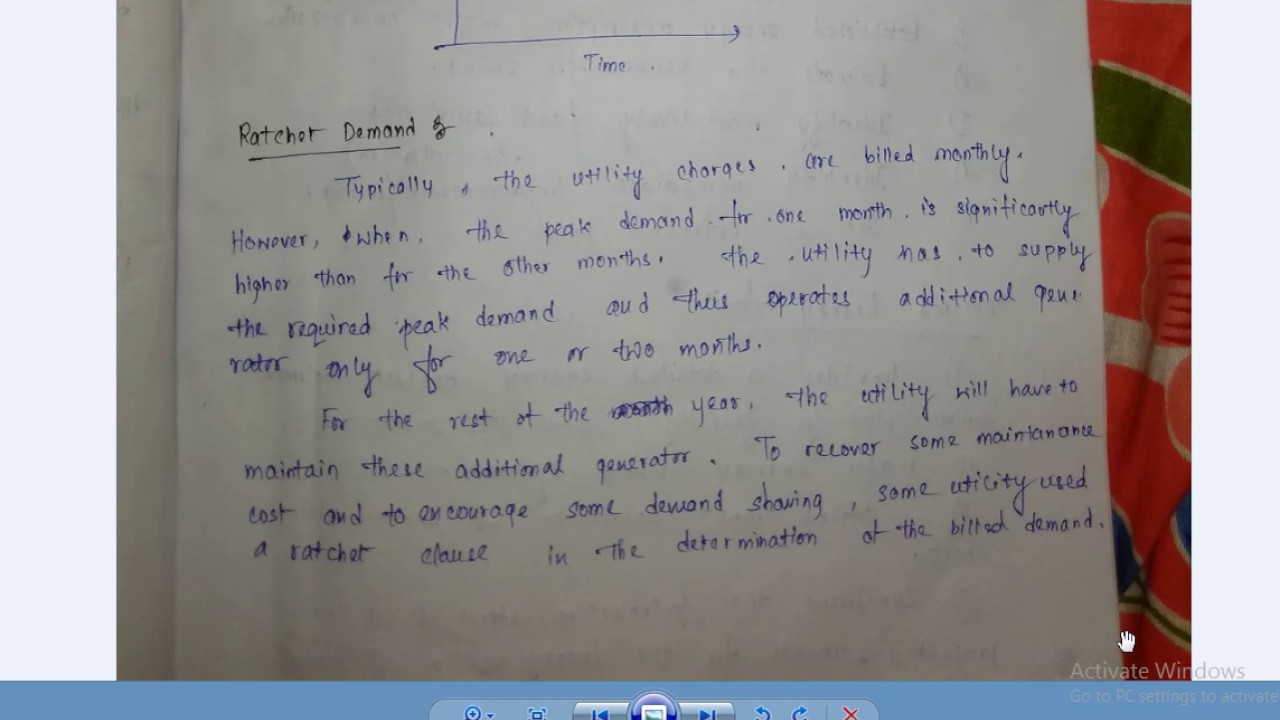 Time
Ratchet Demand :
Typically, the utility charges are billed monthly.
However, when the peak demand for one month is significantly
higher than for the other months. the utility has to supply
the required peak demand and thus operates additional gene
rator only for one or two months.
For the rest of the year, the utility will have to
maintain these additional generator. To recover some maintanance
cost and to encourage some demand shaving, some utility used
a ratchet clause in the determination of the billed demand.
Activate Windows
Go to PC settings to activate